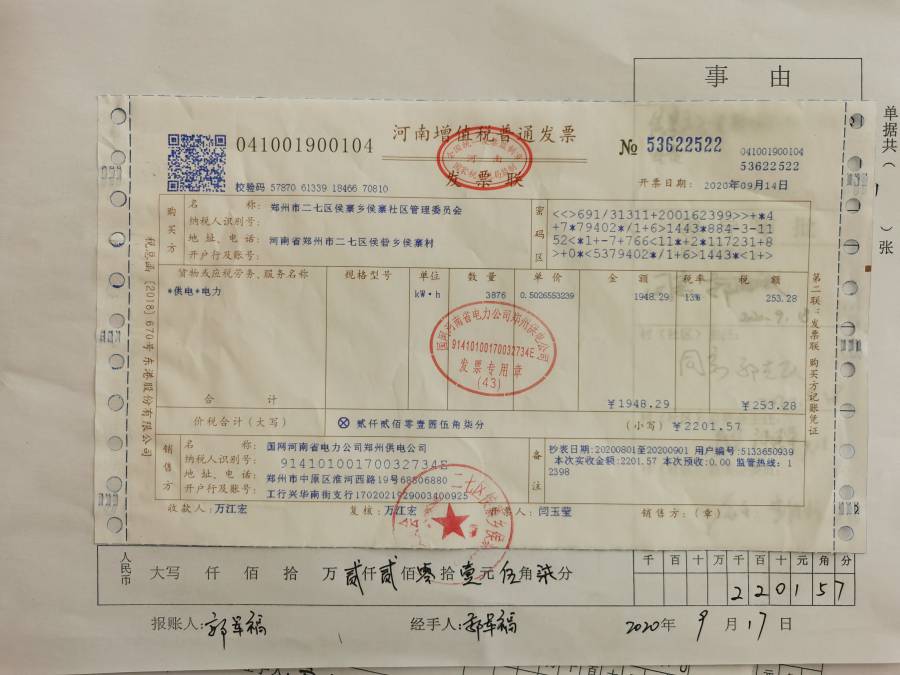 事 由
单据共( )张
河南增值税普通发票
发票联
041001900104
№ 53622522
041001900104
53622522
校验码 57870 61339 18466 70810
开票日期: 2020年09月14日
购买方
名 称: 郑州市二七区侯寨乡侯寨社区管理委员会
纳税人识别号:
地 址、电 话: 河南省郑州市二七区侯寨乡侯寨村
开户行及账号:
密码区
<<>691/31311+200162399>>+*4
+7*79402*/1+6>1443*884-3-11
52<*1+-7+766<11*+2*117231+8
>+0*<5379402*/1+6>1443*<1+>
货物或应税劳务、服务名称 规格型号 单位 数 量 单 价 金 额 税率 税 额
*供电*电力 kW·h 3876 0.5026553239 1948.29 13% 253.28
国网河南省电力公司郑州供电公司
91410100170032734E
发票专用章
(43)
合 计 ¥1948.29 ¥253.28
价税合计(大写) ⊗ 贰仟贰佰零壹圆伍角柒分 (小写) ¥2201.57
销售方
名 称: 国网河南省电力公司郑州供电公司
纳税人识别号: 91410100170032734E
地 址、电 话: 郑州市中原区淮河西路19号68506880
开户行及账号: 工行兴华南街支行1702021929003400925
备注
抄表日期:20200801至20200901 用户编号:5133650939
本次实收金额:2201.57 本次预收:0.00 监管热线:1
2398
收款人: 万江宏 复核: 万江宏 开票人: 闫玉莹 销售方:(章)
税总函[2018]670号东港股份有限公司
第二联:发票联 购买方记账凭证
人民币 大写 仟 佰 拾 万 贰仟 贰佰 零拾 壹元 伍角 柒分
千 百 十 万 千 百 十 元 角 分
2 2 0 1 5 7
报账人: 郭军福 经手人: 郭军福 2020年 9月 17日